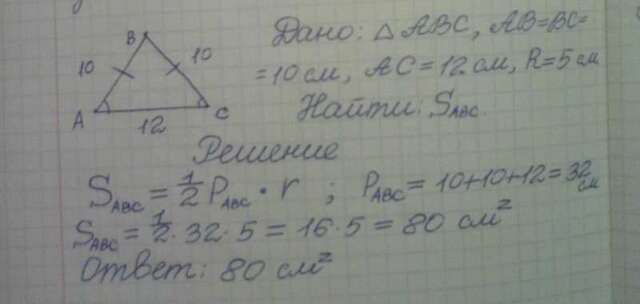 B
10
10
A
12
C
Дано: △ABC, AB=BC=
=10 см, AC=12 см, R=5 см
Найти: S_ABC
Решение
S_ABC = 1/2 P_ABC · r ; P_ABC = 10+10+12=32 см
S_ABC = 1/2 · 32 · 5 = 16 · 5 = 80 см²
Ответ: 80 см²